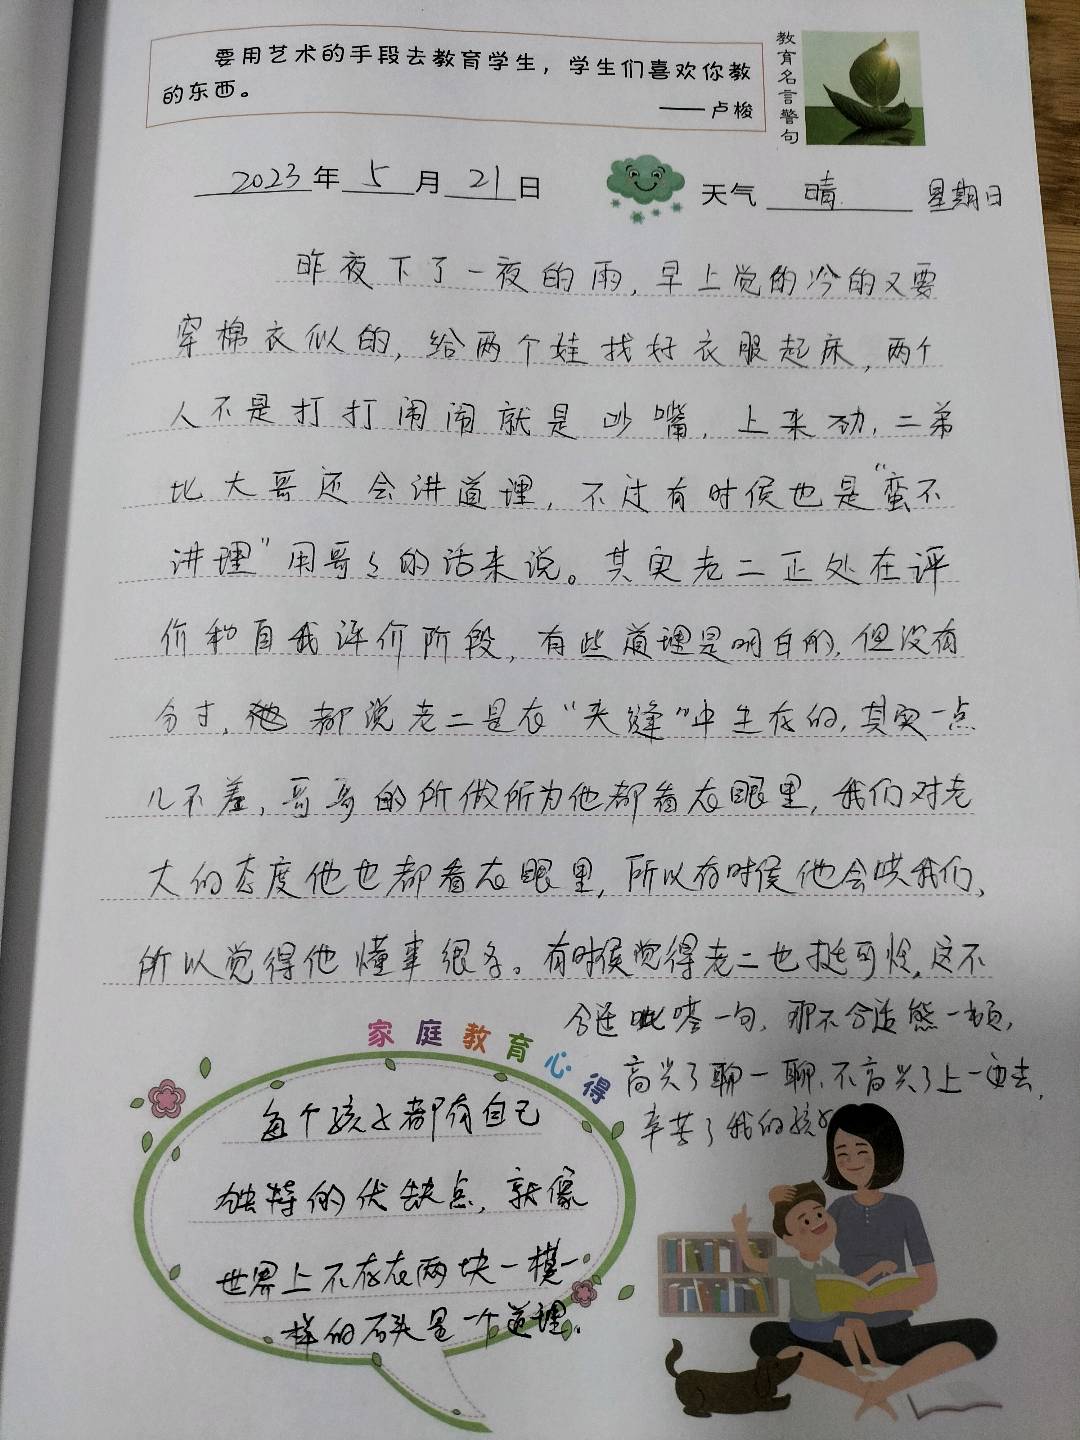 要用艺术的手段去教育学生，学生们喜欢你教
的东西。
——卢梭
教育名言警句
2023年5月21日
天气 晴 星期日
昨夜下了一夜的雨，早上觉的冷的又要
穿棉衣似的，给两个娃找好衣服起床，两个
人不是打打闹闹就是吵嘴，上来劝，二弟
比大哥还会讲道理，不过有时候也是“蛮不
讲理”用哥哥的话来说。其实老二正处在评
价和自我评价阶段，有些道理是明白的，但没有
分寸，都说老二是在“夹缝”中生存的，其实一点
儿不差，哥哥的所做所为他都看在眼里，我们对老
大的态度他也都看在眼里，所以有时候他会哄我们，
所以觉得他懂事很多。有时候觉得老二也挺可怜，这不
合适呲嗒一句，那不合适熊一顿，
高兴了聊一聊，不高兴了上一边去，
辛苦了我的孩子
家庭教育心得
每个孩子都有自己
独特的优缺点，就像
世界上不存在两块一模一
样的石头是一个道理。